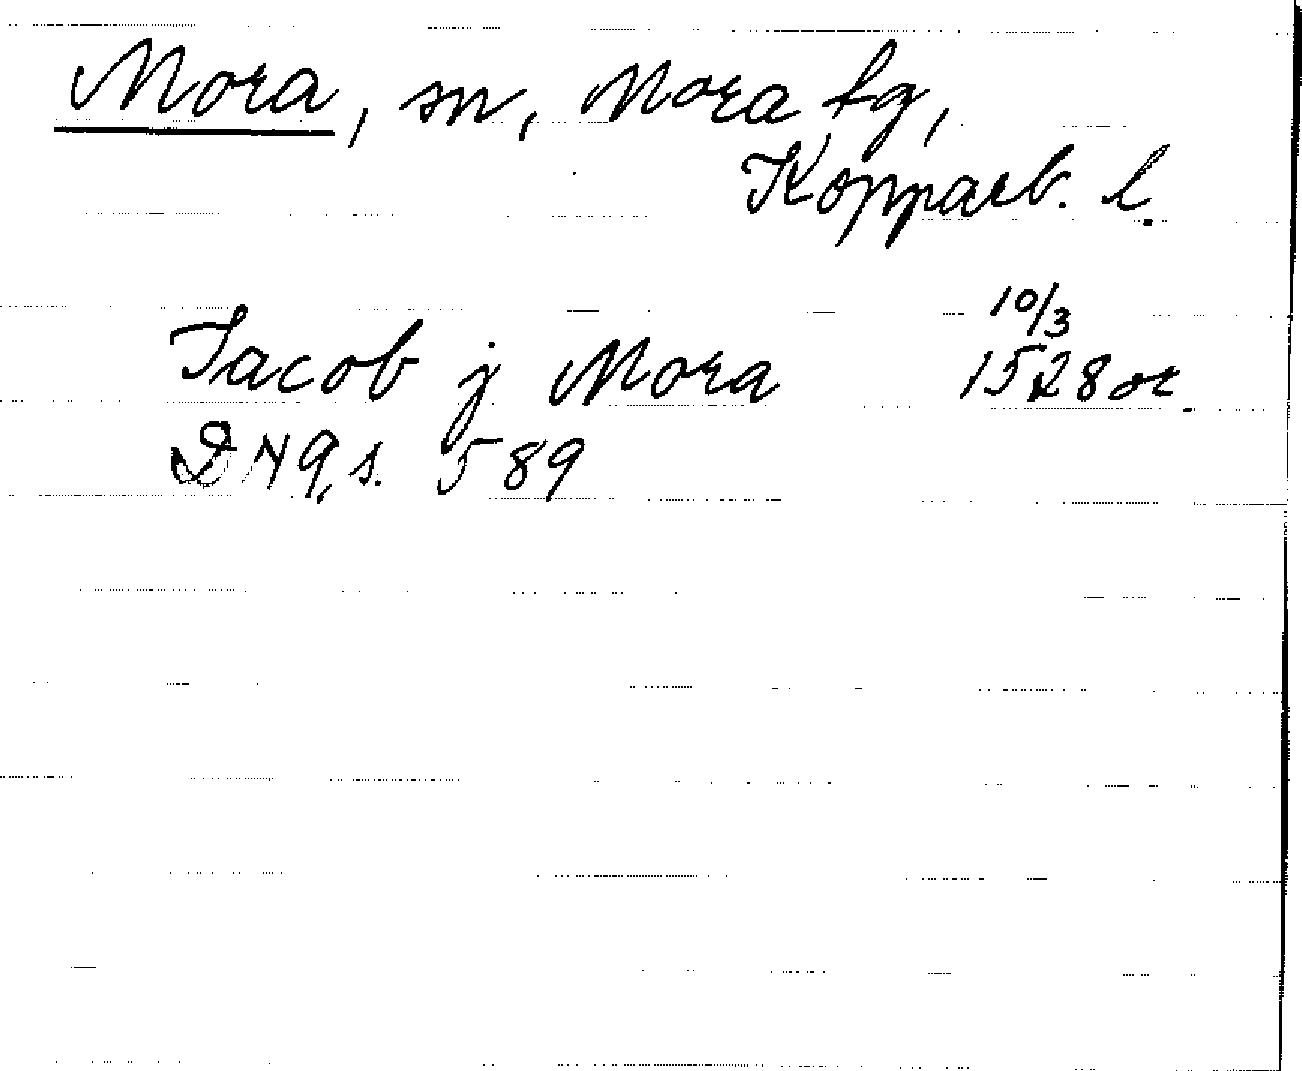 Mora, sn, Mora tg,
Kopparb. l.
Jacob j Mora 10/3 1528 or.
DN 9, s. 589